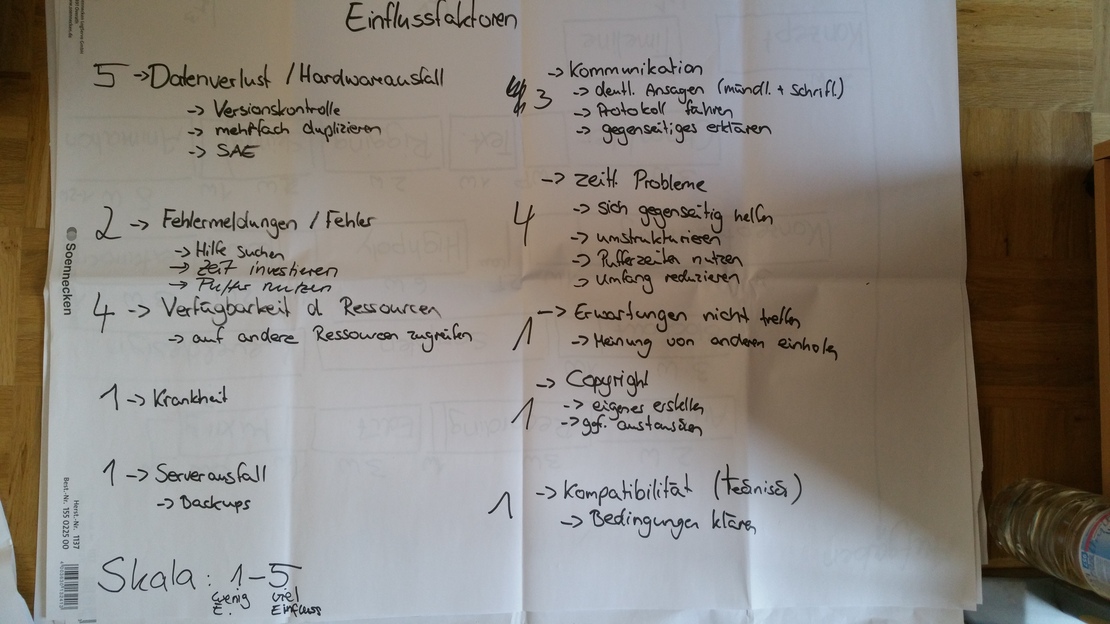 Einflussfaktoren
5 -> Datenverlust / Hardwareausfall
-> Versionskontrolle
-> mehrfach duplizieren
-> SAE
2 -> Fehlermeldungen / Fehler
-> Hilfe suchen
-> Zeit investieren
-> Puffer nutzen
4 -> Verfügbarkeit d Ressourcen
-> auf andere Ressourcen zugreifen
1 -> Krankheit
1 -> Serverausfall
-> Backups
Skala: 1-5
wenig viel
E. Einfluss
-> Kommunikation
3 -> deutl. Ansagen (mündl. + schriftl.)
-> Protokoll führen
-> gegenseitiges erklären
-> zeitl. Probleme
4 -> sich gegenseitig helfen
-> umstrukturieren
-> Pufferzeiten nutzen
-> Umfang reduzieren
1 -> Erwartungen nicht treffen
-> Meinung von anderen einholen
-> Copyright
1 -> eigenes erstellen
-> ggf. austauschen
1 -> Kompatibilität (technisch)
-> Bedingungen klären
Soennecken
Herst.-Nr. 1137
Best.-Nr. 155 0225 00